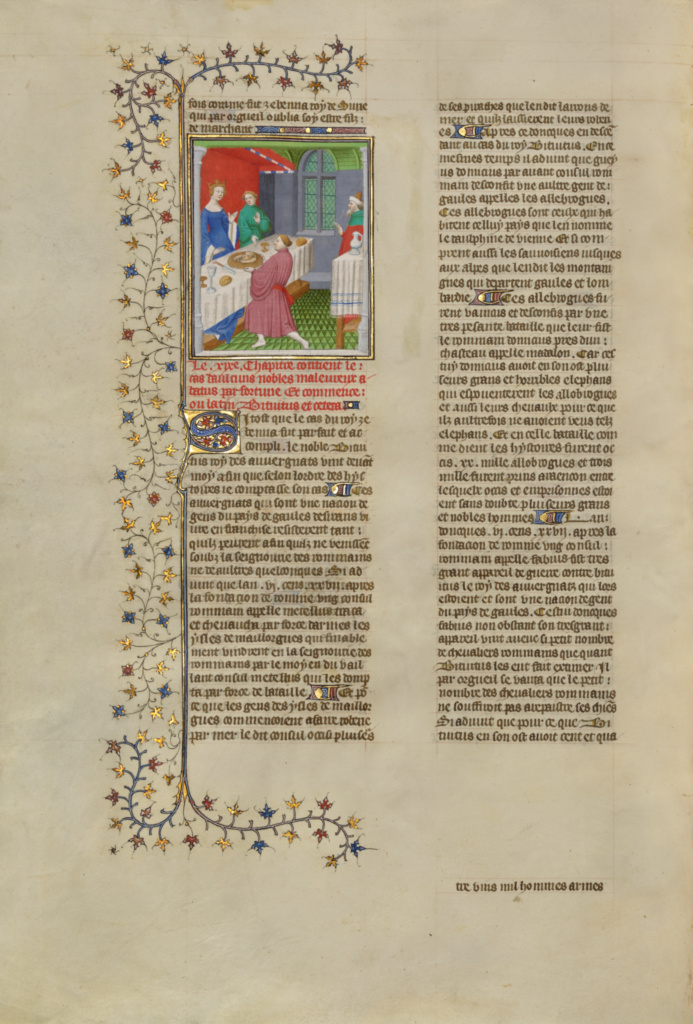 fois comme fut zebenna roy de Surie
qui par orgueil oublia soy estre filz
de marchant
Le .xxe. Chapitre contient le
cas daucuns nobles maleureux a
batus par fortune Et commence
ou latin Bituitus et cetera
Si tost que le cas du roy ze
benna fut parfait et ac
compli. le noble Bitui
tus roy des auvergnats vint devant
moy afin que selon lordre des hys
toires ie comptasse son cas Ces
auvergnats qui sont une nacion de
gens du pays de gaules desirans vi
vre en franchise resisterent tant
quilz peurent afin quilz ne venissent
soubz la seignourie des rommains
ne de aultres quelconques Si ad
vint que lan .vi. cens .xxvii. apres
la fondacion de romme ung consul
rommain appelle metellus
et chevaucha par force darmes les
ysles de maillorgues qui finable
ment vindrent en la seignourie des
rommains par le moyen du vail
lant consul metellus qui les domp
ta par force de bataille Et po
ce que les gens des ysles de maillor
gues commencoient a faire roberie
par mer le dit consul occist pluiseurs
de ses pirathes que len dit larrons de
mer et quilz laisserent leurs robe
ries Apres ce doncques en descen
dant au cas du roy Bituitus. En ce
mesmes temps il advint que gney
us domicius par avant consul rom
main desconfit une aultre gent de
gaules appelles les allobrogues.
Ces allobrogues sont ceulx qui ha
bitent celluy pays que len nomme
le daulphine de vienne Et si com
prent aussi les sauvoisiens iusques
aux alpes que len dit les montai
gnes qui departent gaules et lom
bardie Ces allobrogues fu
rent vaincus et desconfis par une
tres pesante bataille que leur fist
le rommain domicius pres dun
chasteau appelle madalon. Car ces
tuy domicius avoit en son ost plui
seurs grans et horribles elephans
qui espoventerent les allobrogues
et aussi leurs chevaulx pour ce que
ilz aultrefois ne avoient veus telz
elephans. Et en celle bataille com
me dient les hystoires furent oc
cis .xx. mille allobrogues et trois
mille furent prins
lesquelx occis et emprisonnes estoi
ent sans doubte pluiseurs grans
et nobles hommes Lan
doncques .vi. cens .xxvii. apres la
fondacion de romme ung consul
rommain appelle fabius fist tres
grant appareil de guerre contre bitui
tus le roy des auvergnatz qui lors
estoient et sont une nacion de gent
du pays de gaules. Cestui doncques
fabius non obstant son tresgrant
appareil vint avecq si petit nombre
de chevaliers rommains que quant
Bituitus les eut fait extimer Il
par orgueil se vanta que le petit
nombre des chevaliers rommains
ne souffiroit pas a repaistre ses chiens
Si advint que pour ce que Bi
tuitus en son ost avoit cent et qua
tre vins mil hommes armes